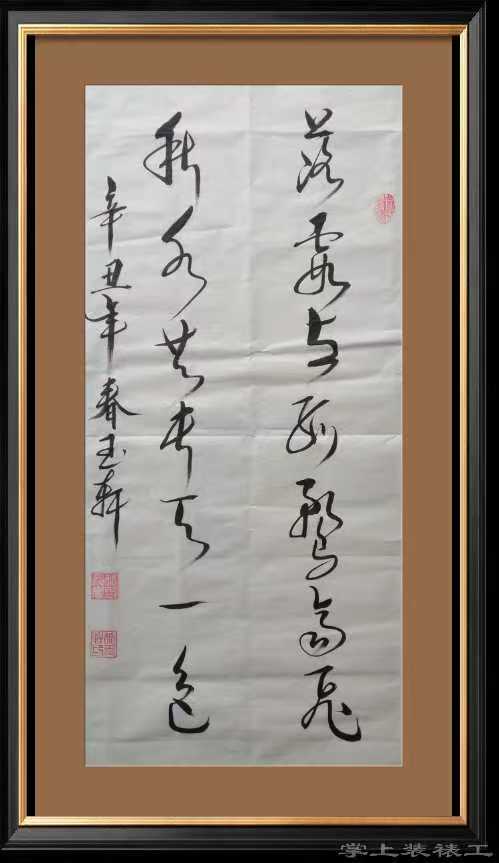 落霞与孤鹜齐飞
秋水共长天一色
辛丑年春玉轩
掌上装裱工